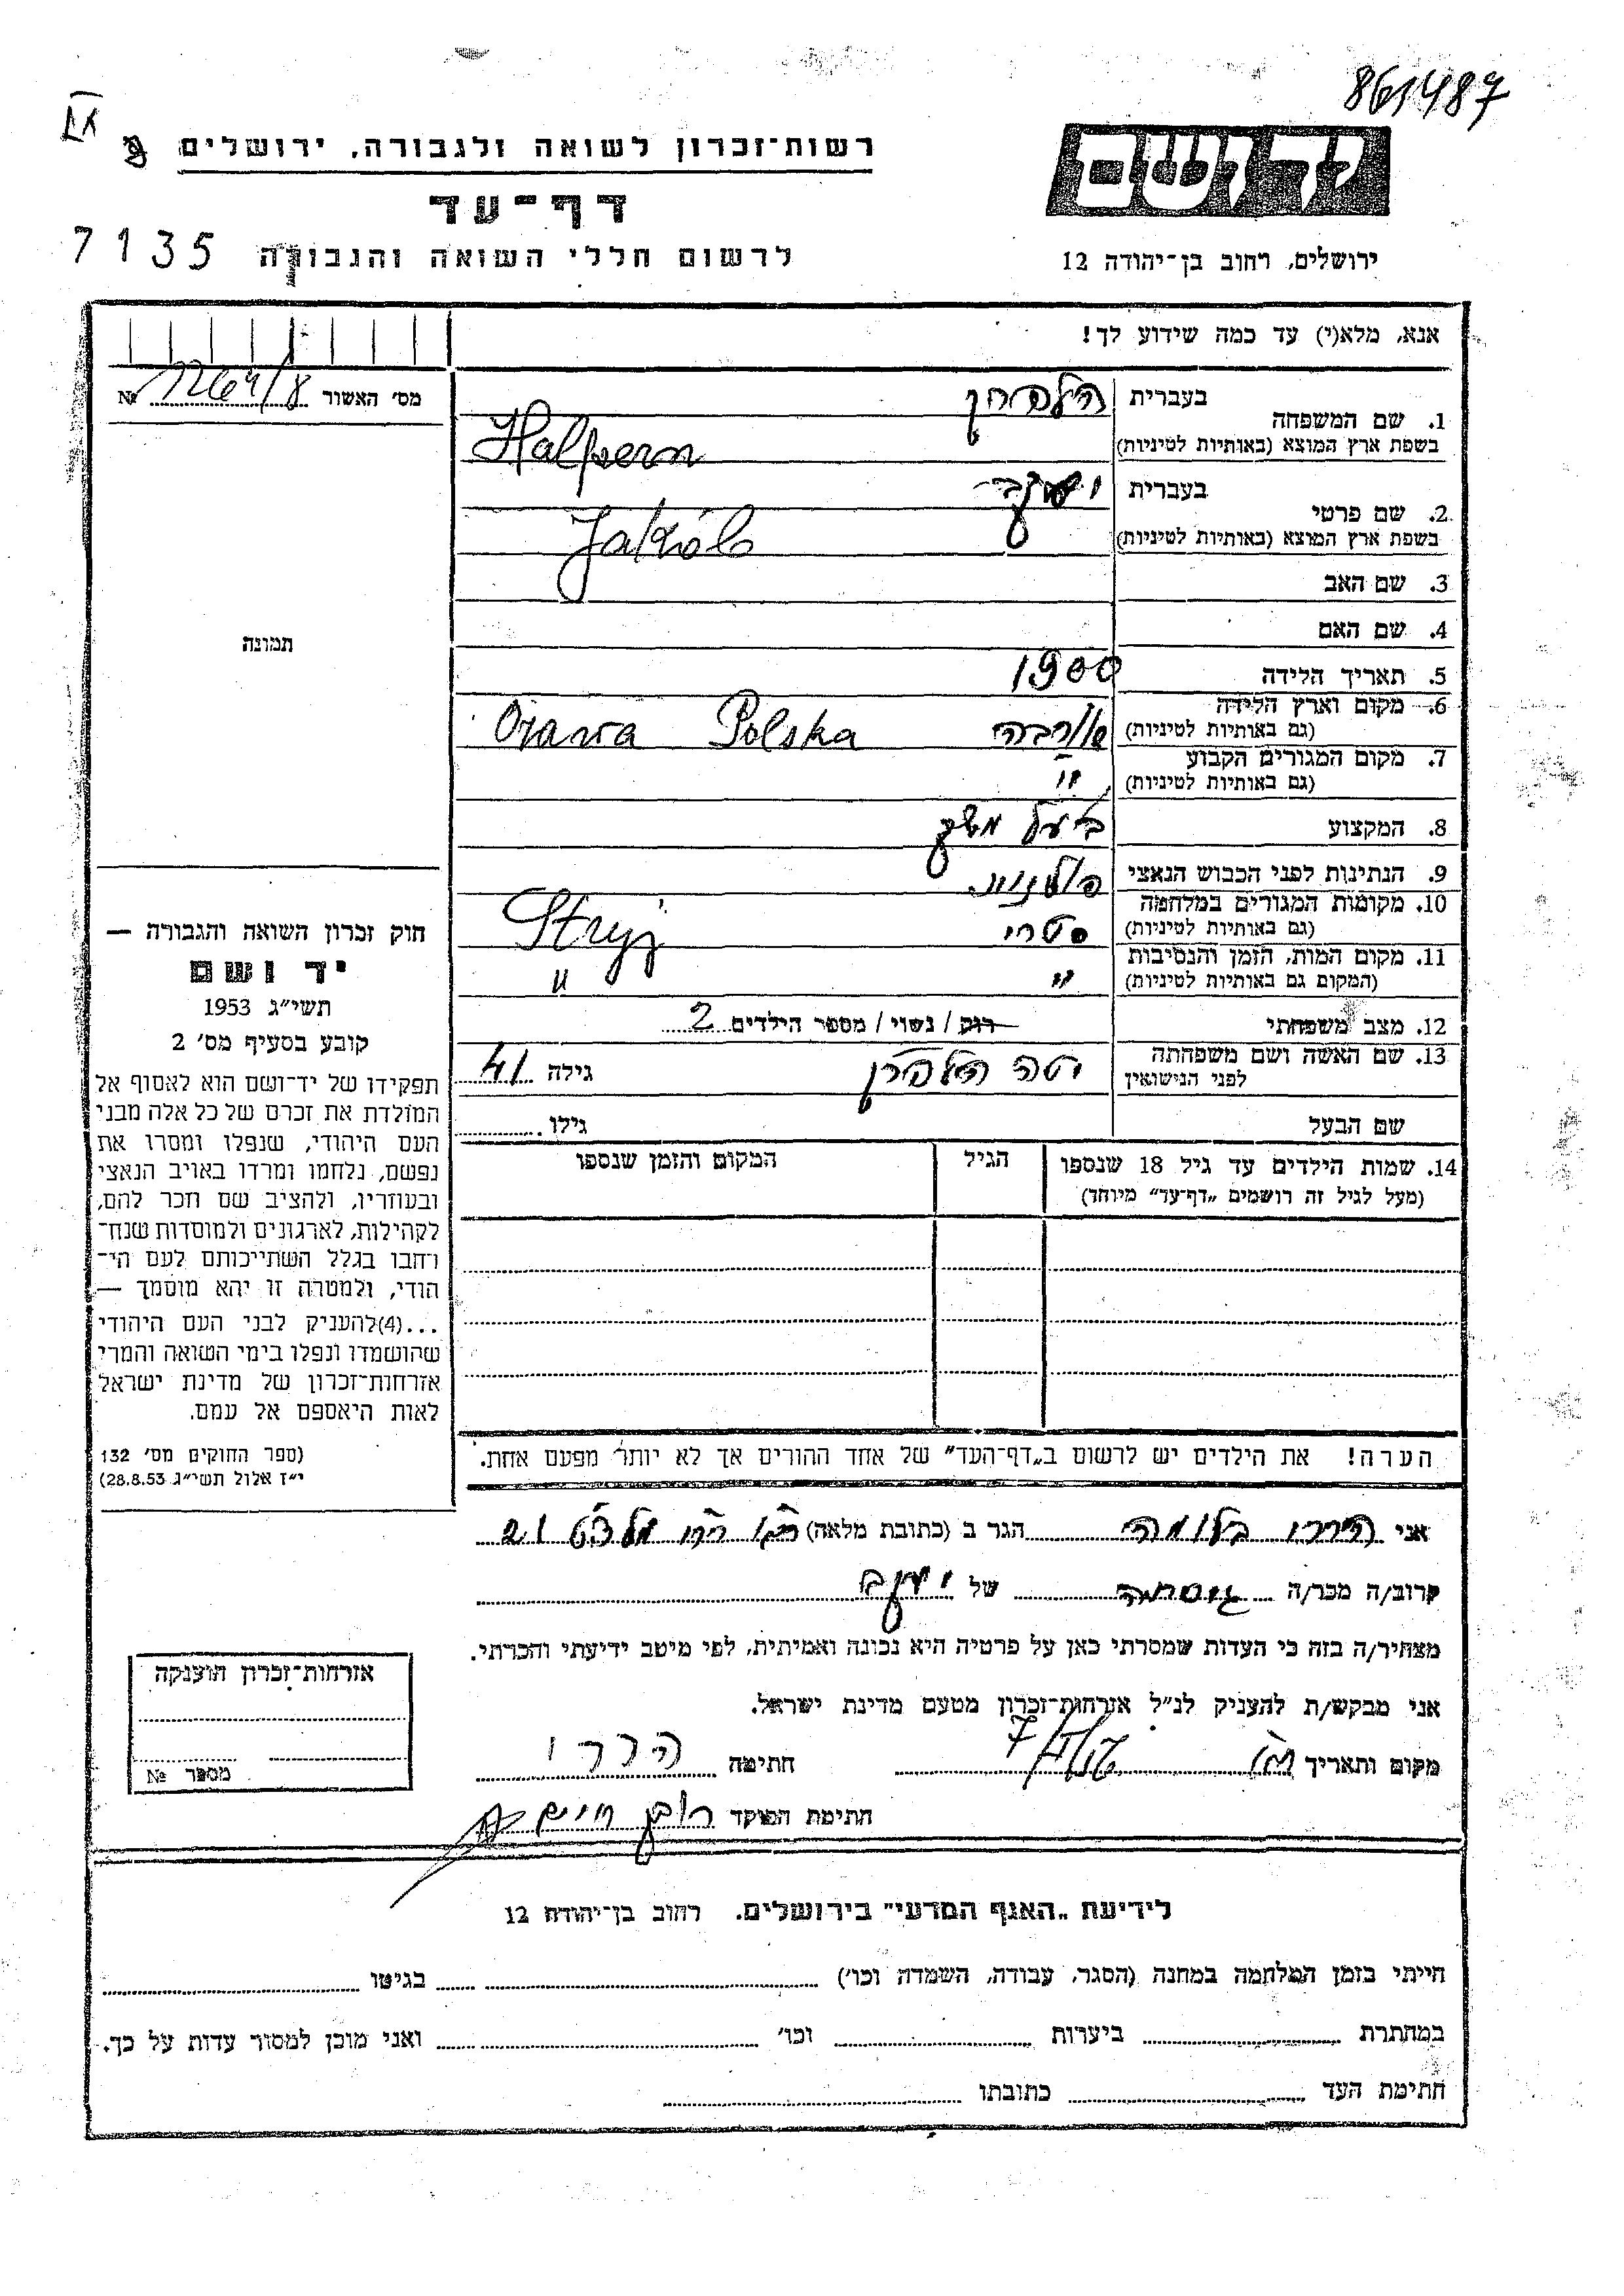 861487
IX
רשות־זכרון לשואה ולגבורה, ירושלים
יד ושם
דף־עד
7135
לרשום חללי השואה והגבורה
ירושלים, רחוב בן־יהודה 12
אנא, מלא(י) עד כמה שידוע לך!
מס׳ האשור 1264/8 №
1. שם המשפחה
בעברית הלפרן
בשפת ארץ המוצא (באותיות לטיניות) Halpern
2. שם פרטי
בעברית יעקב
בשפת ארץ המוצא (באותיות לטיניות) Jakób
3. שם האב
4. שם האם
תמונה
5. תאריך הלידה 1900
6. מקום וארץ הלידה
(גם באותיות לטיניות) Orawa Polska
7. מקום המגורים הקבוע
(גם באותיות לטיניות) "
8. המקצוע בעל משק
9. הנתינות לפני הכבוש הנאצי פולנית
10. מקומות המגורים במלחמה
(גם באותיות לטיניות) סטרי Stryj
11. מקום המות, הזמן והנסיבות
(המקום גם באותיות לטיניות) " "
12. מצב משפחתי רווק / נשוי / מספר הילדים 2
13. שם האשה ושם משפחתה
לפני הנישואין יטה הלפרן גילה 41
שם הבעל גילו
14. שמות הילדים עד גיל 18 שנספו
(מעל לגיל זה רושמים „דף־עד” מיוחד)
הגיל
המקום והזמן שנספו
הערה! את הילדים יש לרשום ב„דף־העד” של אחד ההורים אך לא יותר מפעם אחת.
חוק זכרון השואה והגבורה —
יד ושם
תשי״ג 1953
קובע בסעיף מס׳ 2
תפקידו של יד־ושם הוא לאסוף אל
המולדת את זכרם של כל אלה מבני
העם היהודי, שנפלו ומסרו את
נפשם, נלחמו ומרדו באויב הנאצי
ובעוזריו, ולהציב שם וזכר להם,
לקהילות, לארגונים ולמוסדות שנח־
רבו בגלל השתייכותם לעם הי־
הודי, ולמטרה זו יהא מוסמך —
...(4)להעניק לבני העם היהודי
שהושמדו ונפלו בימי השואה והמרי
אזרחות־זכרון של מדינת ישראל
לאות היאספם אל עמם.
(ספר החוקים מס׳ 132
י״ז אלול תשי״ג 28.8.53)
אני הררי בלומה הגר ב (כתובת מלאה)
קרוב/ה מכר/ה של יעקב
מצהיר/ה בזה כי העדות שמסרתי כאן על פרטיה היא נכונה ואמיתית, לפי מיטב ידיעתי והכרתי.
אני מבקש/ת להעניק לנ״ל אזרחות־זכרון מטעם מדינת ישראל.
מקום ותאריך חתימה הררי
חתימת הפוקד
אזרחות־זכרון הוענקה
מספר №
לידיעת „האגף המדעי” בירושלים. רחוב בן־יהודה 12
הייתי בזמן המלחמה במחנה (הסגר, עבודה, השמדה וכו׳) בגיטו
במחתרת ביערות וכו׳ ואני מוכן למסור עדות על כך.
חתימת העד כתובתו